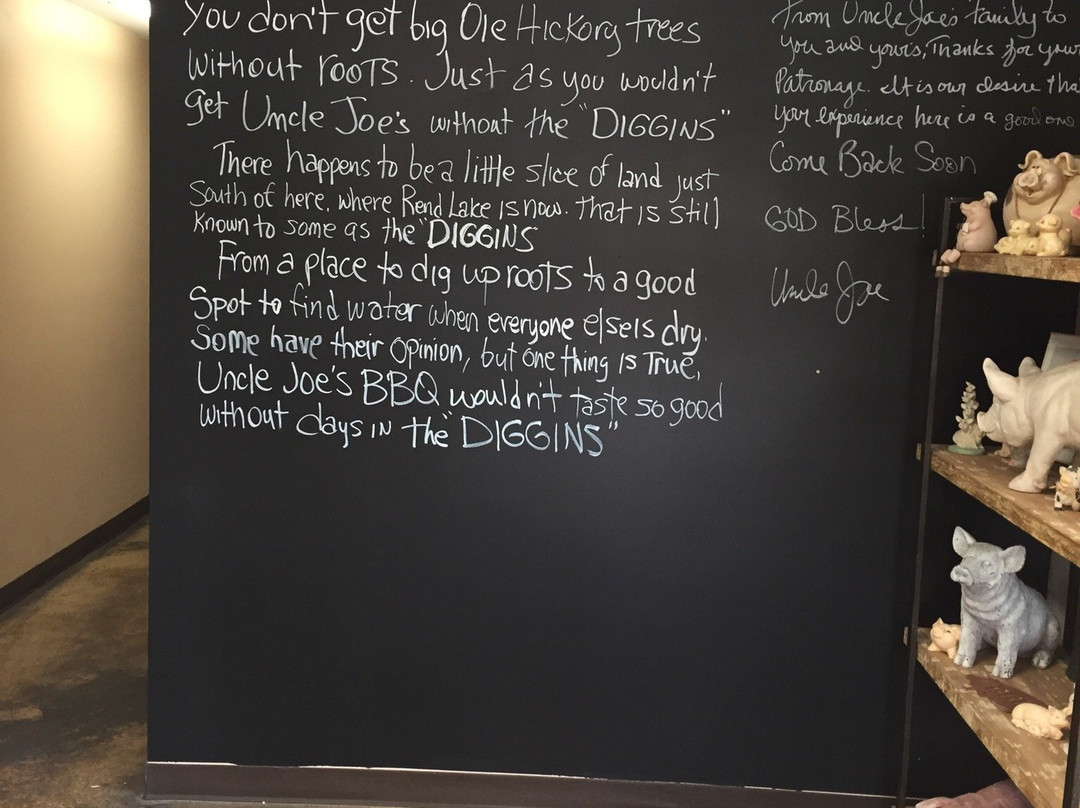 You don't get big Ole Hickory trees
without roots. Just as you wouldn't
get Uncle Joe's without the "DIGGINS"
There happens to be a little slice of land just
South of here, where Rend Lake is now. That is still
known to some as the "DIGGINS
From a place to dig up roots to a good
Spot to find water when everyone else is dry.
Some have their opinion, but one thing is True,
Uncle Joe's BBQ wouldn't taste so good
without days in the "DIGGINS"
From Uncle Joe's family to
you and yours, Thanks for your
Patronage. It is our desire tha
your experience here is a good one
Come Back Soon
GOD Bless!
Uncle Joe